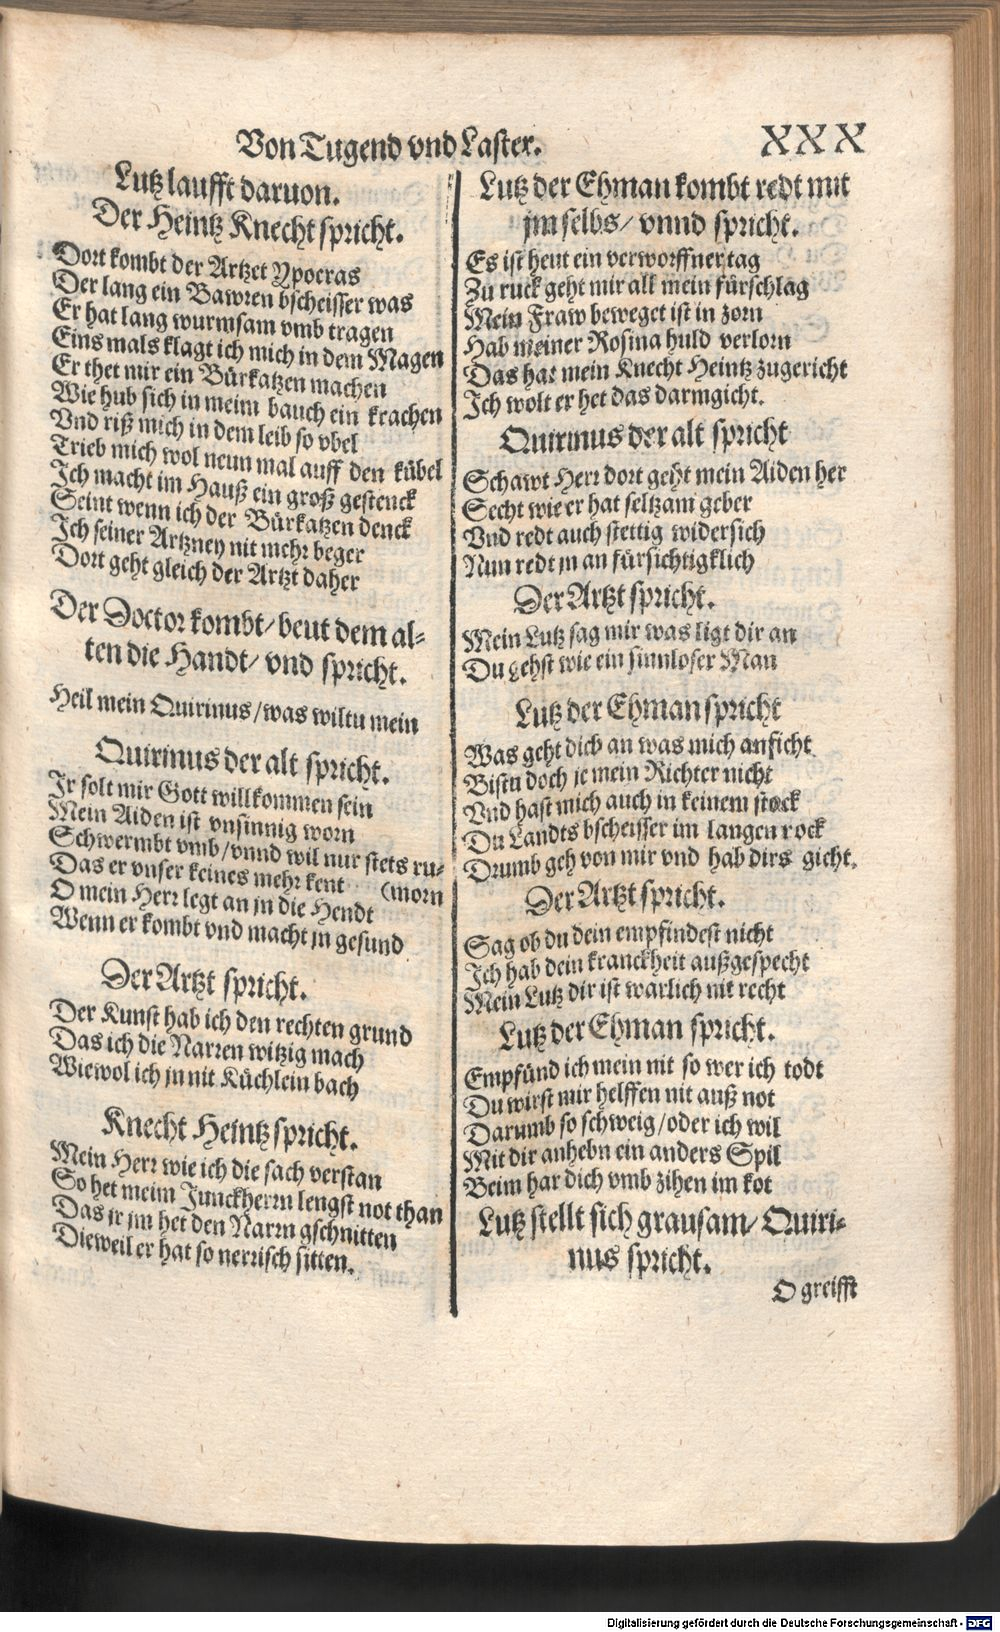 Von Tugend vnd Laster.
XXX
Lutz laufft daruon.
Der Heintz Knecht spricht.
Dort kombt der Artzet Ypocras
Der lang ein Bawren bscheisser was
Er hat lang wurmsam vmb tragen
Eins mals klagt ich mich in dem Magen
Er thet mir ein Bürkatzen machen
Wie hub sich in meim bauch ein krachen
Vnd riß mich in dem leib so vbel
Trieb mich wol neun mal auff den kübel
Ich macht im Hauß ein groß gestenck
Seint wenn ich der Bürkatzen denck
Ich seiner Artzney nit mehr beger
Dort geht gleich der Artzt daher
Der Doctor kombt/ beut dem al-
ten die Handt/ vnd spricht.
Heil mein Quirinus/ was wiltu mein
Quirinus der alt spricht.
Ir solt mir Gott willkommen sein
Mein Aiden ist vnsinnig worn
Schwermbt vmb/ vnnd wil nur stets ru-
Das er vnser keines mehr kent (morn
O mein Herr legt an jn die Hendt
Wenn er kombt vnd macht jn gesund
Der Artzt spricht.
Der Kunst hab ich den rechten grund
Das ich die Narren witzig mach
Wiewol ich jn nit Küchlein bach
Knecht Heintz spricht.
Mein Herr wie ich die sach verstan
So het meim Junckherrn lengst not than
Das jr jm het den Narrn gschnitten
Dieweil er hat so nerrisch sitten.
Lutz der Ehman kombt redt mit
jm selbs/ vnnd spricht.
Es ist heut ein verworffner tag
Zu ruck geht mir all mein fürschlag
Mein Fraw beweget ist in zorn
Hab meiner Rosina huld verlorn
Das hat mein Knecht Heintz zugericht
Ich wolt er het das darmgicht.
Quirinus der alt spricht
Schawt Herr dort geht mein Aiden her
Secht wie er hat seltzam geber
Vnd redt auch stettig widersich
Nun redt jn an fürsichtigklich
Der Artzt spricht.
Mein Lutz sag mir was ligt dir an
Du gehst wie ein sinnloser Man
Lutz der Ehman spricht
Was geht dich an was mich anficht
Bistu doch je mein Richter nicht
Vnd hast mich auch in keinem stock
Du Landts bscheisser im langen rock
Drumb geh von mir vnd hab dirs gicht.
Der Artzt spricht.
Sag ob du dein empfindest nicht
Ich hab dein kranckheit außgespecht
Mein Lutz dir ist warlich nit recht
Lutz der Ehman spricht.
Empfünd ich mein nit so wer ich todt
Du wirst mir helffen nit auß not
Darumb so schweig/ oder ich wil
Mit dir anhebn ein anders Spil
Beim har dich vmb zihen im kot
Lutz stellt sich grausam/ Quiri-
nus spricht.
O greifft
Digitalisierung gefördert durch die Deutsche Forschungsgemeinschaft - DFG